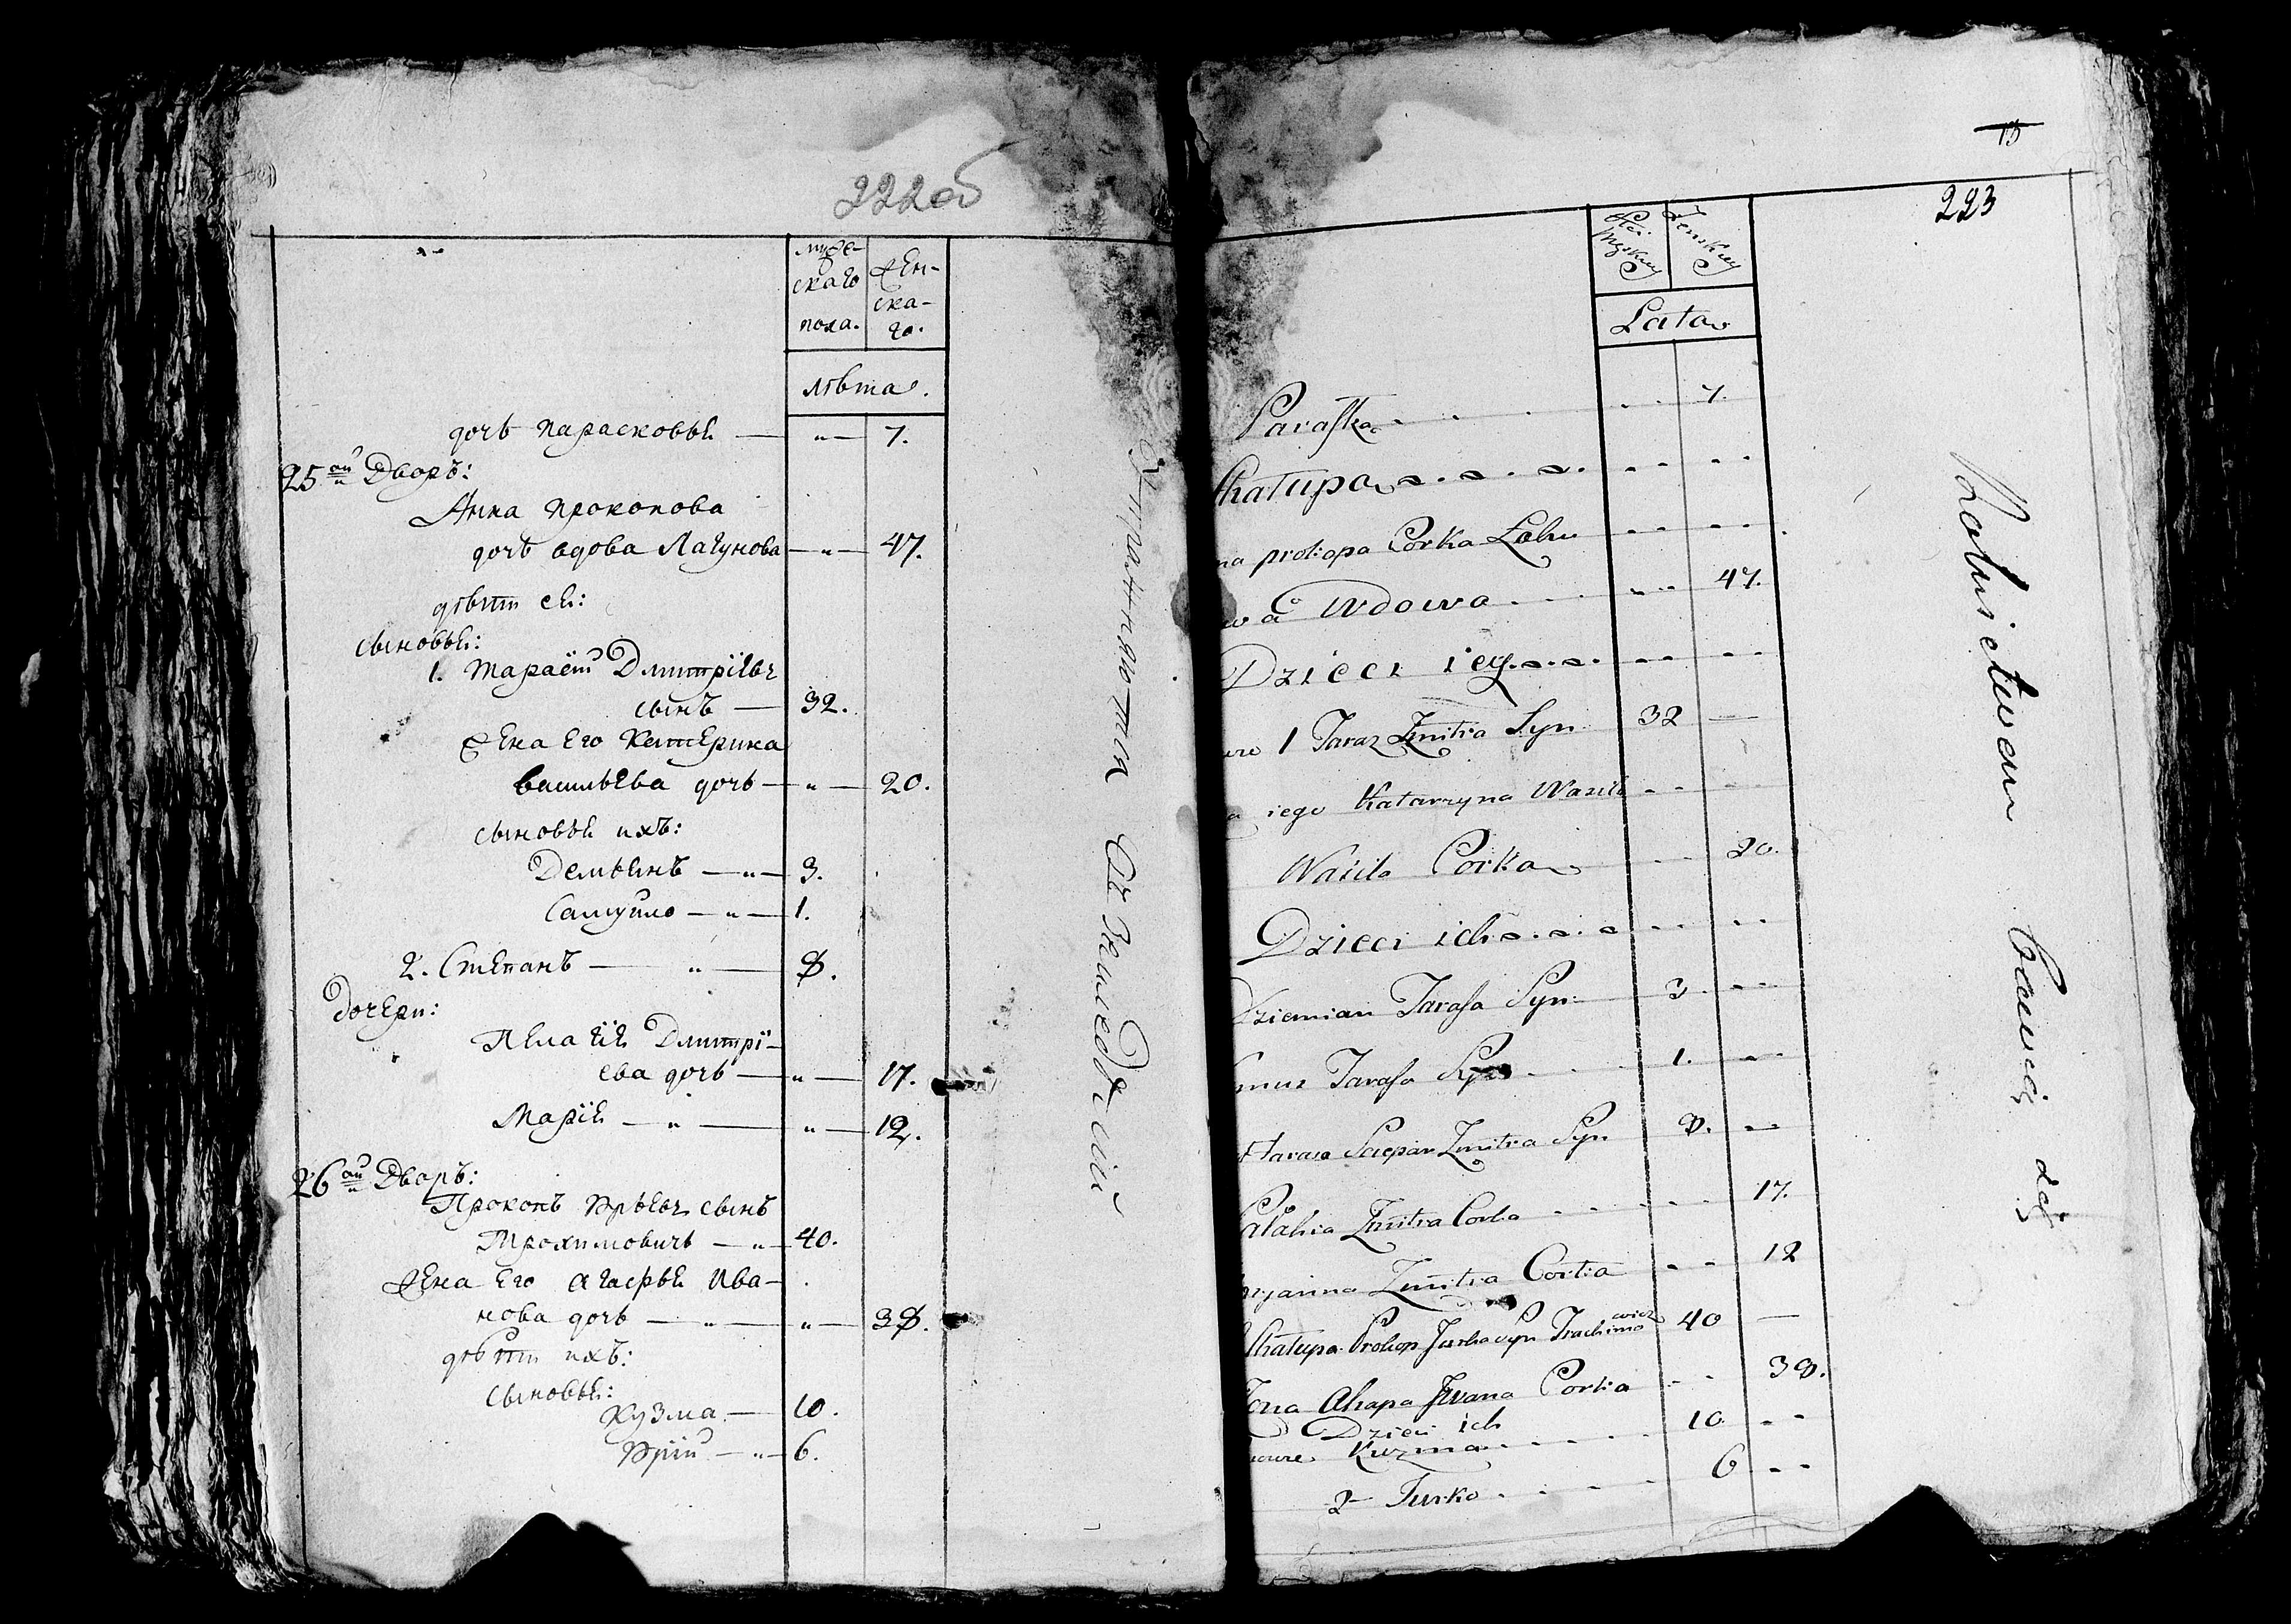 222об
муже-
скаго
пола.
жен-
ска-
го.
лѣта.
дочь Парасковья — „ — 7.
25ой Дворъ:
Анна Прокопова
дочь вдова Лагунова — „ — 47.
дѣти ея:
сыновья:
1. Тарасъ Дмитріевъ
сынъ — 32.
Жена Его Катерина
васильева дочь — „ — 20.
сыновья ихъ:
Демьянъ — „ — 3.
Самуило — „ — 1.
2. Степанъ — „ — 8.
Дочери:
Пелагія Дмитрі-
ева дочь — „ — 17.
Марія — „ — „ — 12.
26ой Дворъ:
Прокопъ Юрьевъ сынъ
Трохимовичъ — „ — 40.
Жена Его Агафья Ива-
нова дочь — „ — „ — 38.
дѣти ихъ:
сыновья:
Кузма — 10.
Юрій — „ — 6.
15
223
Płci
Męskiey
Żenskiey
Lata
Paraska 7.
Chatupa
na prokopa Corka Łahu
wa Wdowa 47.
Dzieci iey
1 Taraz Zmitra Syn 32 —
iego Katarzyna Wasil
Wasila Corka 20.
Dzieci ich
Dziemian Tarasa Syn 3
Tarasa Syn 1.
Tarasa Sciepan Zmitra Syn 8.
Palahia Zmitra Corka 17.
Maryanna Zmitra Corka 12
Chatupa Prokop Jurka Syn Trachimowicz 40 —
Żona Ahapa Jwana Corka 38.
Dzieci ich
Kuzma 10
2 Jurko 6